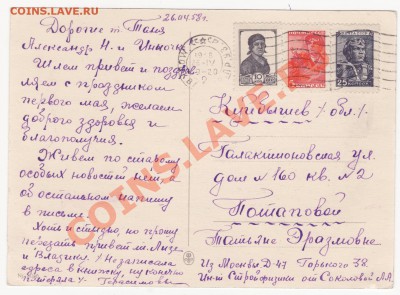 coins.su
26/IV.58г.
Дорогие т. Таня
Александр Н. и Инночка
Шлем привет и поздрав
ляем с праздником
первого мая, желаем
доброго здоровья и
благополучия.
Живем по старому
особых новостей нет, а
об остальном напишу
в письме.
Хоть и стыдно, но прошу
передать привет т. Лизе
и Владику. Незаписала
адреса в книжку, ну конечно
потеряла
10
25
Куйбышев /обл./
Галактионовская ул.
дом № 160 кв. № 2
Потаповой
Татьяне Эразмовне
Из Москвы Д-47 Горького 38
Соколовой А.А.
COINS.LAVE.SU